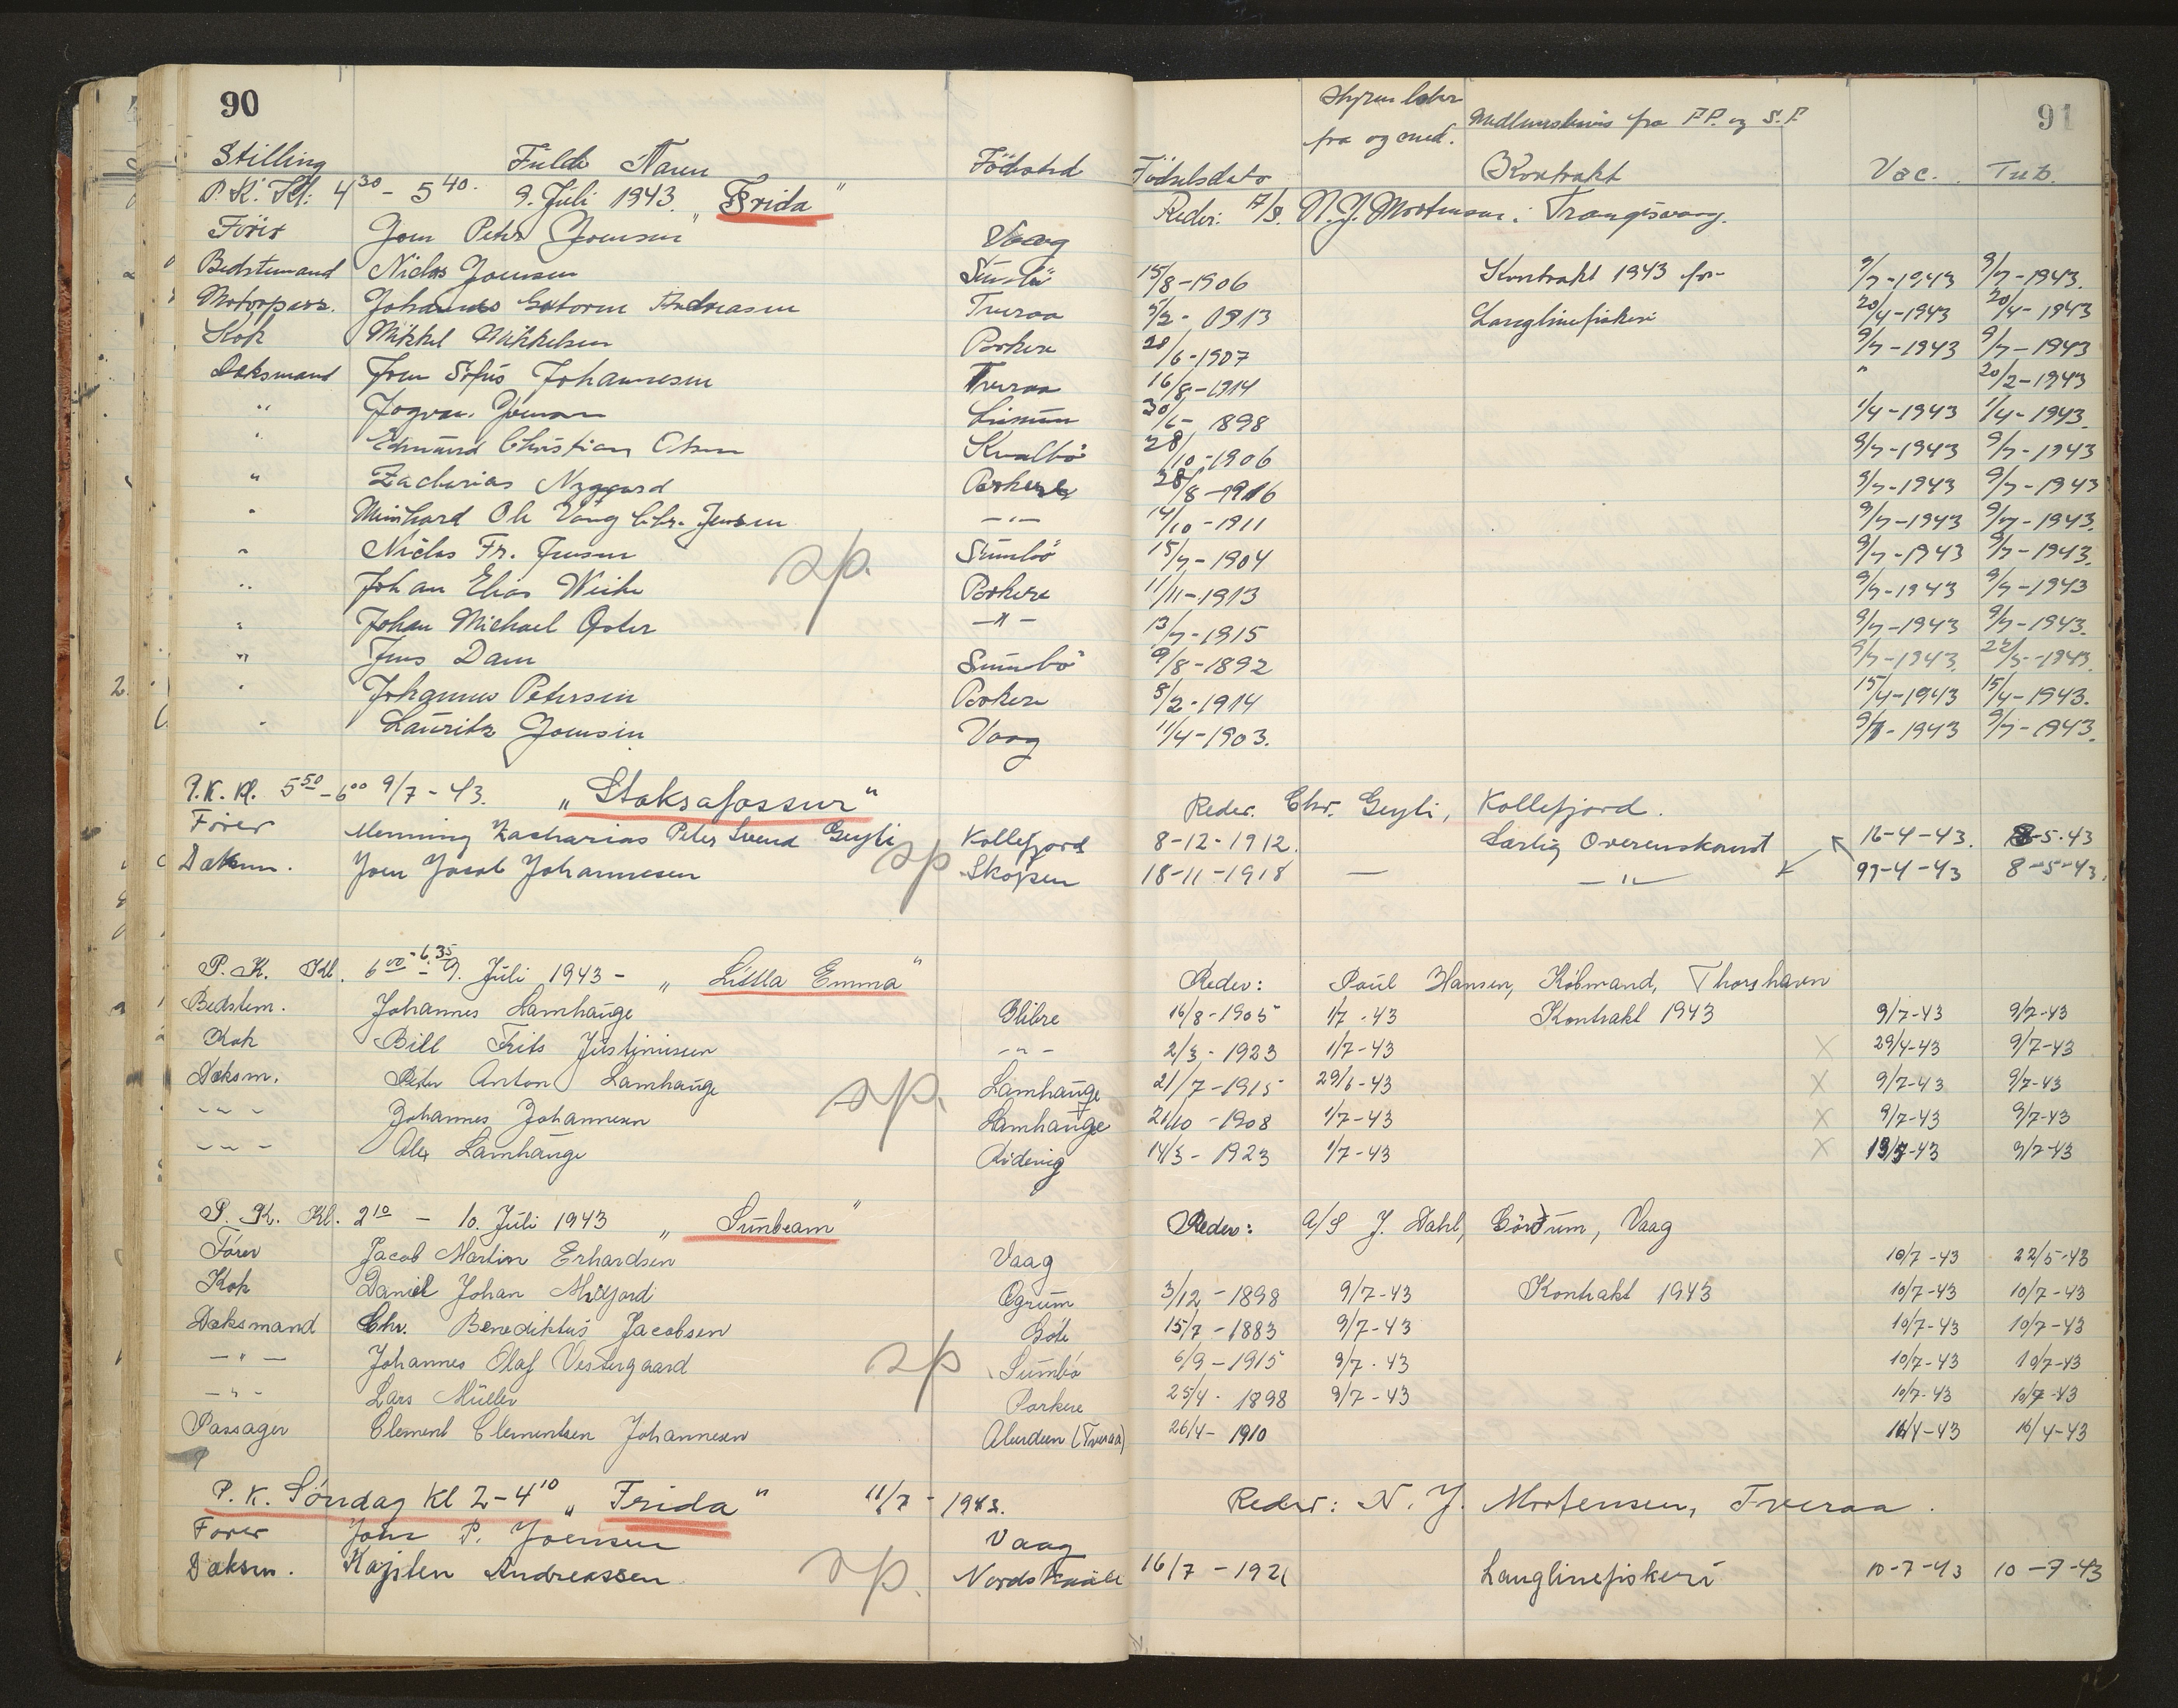 90
91
Stilling Fulde Navn Födested Födselsdato Hyren løber fra og med. Medlemsbevis fra F.F. og S.F. Kontrakt Vac. Tub.
P.K. Kl. 4 30 - 5 40. 9. Juli 1943. "Frida" Reder: A/S. N.J. Mortensen, Trangisvaag.
Förer Joen Peter Joensen Vaag
Bedstemand Niclas Joensen Sumbö 15/8-1906 Kontrakt 1943 for 9/7-1943 9/7-1943.
Motorpass. Johannes Guttorm Andreasen Tveraa 5/2-1913 Langlinefiskeri 20/4-1943 20/4-1943
Kok Mikkel Mikkelsen Porkere 20/6-1907 9/7-1943 9/7-1943
Dæksmand Joen Sofus Johannesen Tveraa 16/8-1914 " 20/2-1943
" Jogvan Joensen 30/6-1898 1/4-1943 1/4-1943.
" Edmund Christian Olsen Kvalbö 28/10-1906 9/7-1943 9/7-1943
" Zacharias Nygaard Porkere 28/8-1916 9/7-1943 9/7-1943
" Meinhard Ole Vaag Chr. Jensen -"- 14/10-1911 9/7-1943 9/7-1943.
" Niclas Fr. Jensen Sumbö 15/7-1904 9/7-1943 9/7-1943.
sp.
" Johan Elias Weihe Porkere 11/11-1913 9/7-1943 9/7-1943
" Johan Michael Öster -"- 13/7-1915 9/7-1943 9/7-1943.
" Jens Dam Sumbö 9/8-1892 9/7-1943. 22/5-1943.
" Johannes Petersen Porkere 8/2-1914 15/4-1943 15/4-1943.
" Lauritz Joensen Vaag 11/4-1903. 9/7-1943 9/7-1943.
P.K. Kl. 5 50 - 6 00 9/7-43. "Staksafossur" Reder. Chr. Geyti, Kollefjord.
Förer Henning Zacharias Peter Svend Geyti Kollefjord 8-12-1912. Særlig Overenskomst 16-4-43. 8-5-43
Dæksm. Joen Jacob Johannesen sp Skopen 18-11-1918 — -"- -4-43 8-5-43.
P.K. Kl. 6 00 - 6.35 9. Juli 1943 - "Litla Emma" Reder: Poul Hansen, Købmand, Thorshavn
Bedstem. Johannes Lamhauge Glibre 16/8-1905 1/7-43 Kontrakt 1943 9/7-43 9/7-43
Kok Bill Frits Justinussen -"- 2/3-1923 1/7-43 X 29/4-43 9/7-43
Dæksm. Peter Anton Lamhauge sp. Lamhauge 21/7-1915 29/6-43 X 9/7-43 9/7-43
-"- Johannes Johannesen Lamhauge 21/10-1908 1/7-43 X 9/7-43 9/7-43
-"- Alex Lamhauge Ridevig 14/3-1923 1/7-43 X 9/7-43
P.K. Kl. 2 10 - 10. Juli 1943 "Sunbeam" Reder: A/S J. Dahl, Vaag
Förer Jacob Martin Erhardsen Vaag 10/7-43 22/5-43
Kok Daniel Johan Midjord Øgrum 3/12-1898 9/7-43 Kontrakt 1943 10/7-43 10/7-43
Dæksmand Chr. Benediktus Jacobsen Göte 15/7-1883 9/7-43 10/7-43 10/7-43
-"- Johannes Olaf Vestergaard sp Sumbö 6/9-1915 9/7-43 10/7-43 10/7-43
-"- Lars Müller Porkere 25/4-1898 9/7-43 10/7-43 10/7-43
Passager Clement Clementsen Johannesen Aberdeen (Tveraa) 26/4-1910 16/4-43 16/4-43
P.K. Søndag Kl 2-4 10 "Frida" 11/7-1943. Reder: N.J. Mortensen, Tveraa.
Fører Joen P. Joensen Vaag
Dæksm. Kajsten Andreassen sp. Nordskaale 16/7-1921 Langlinefiskeri 10-7-43 10-7-43